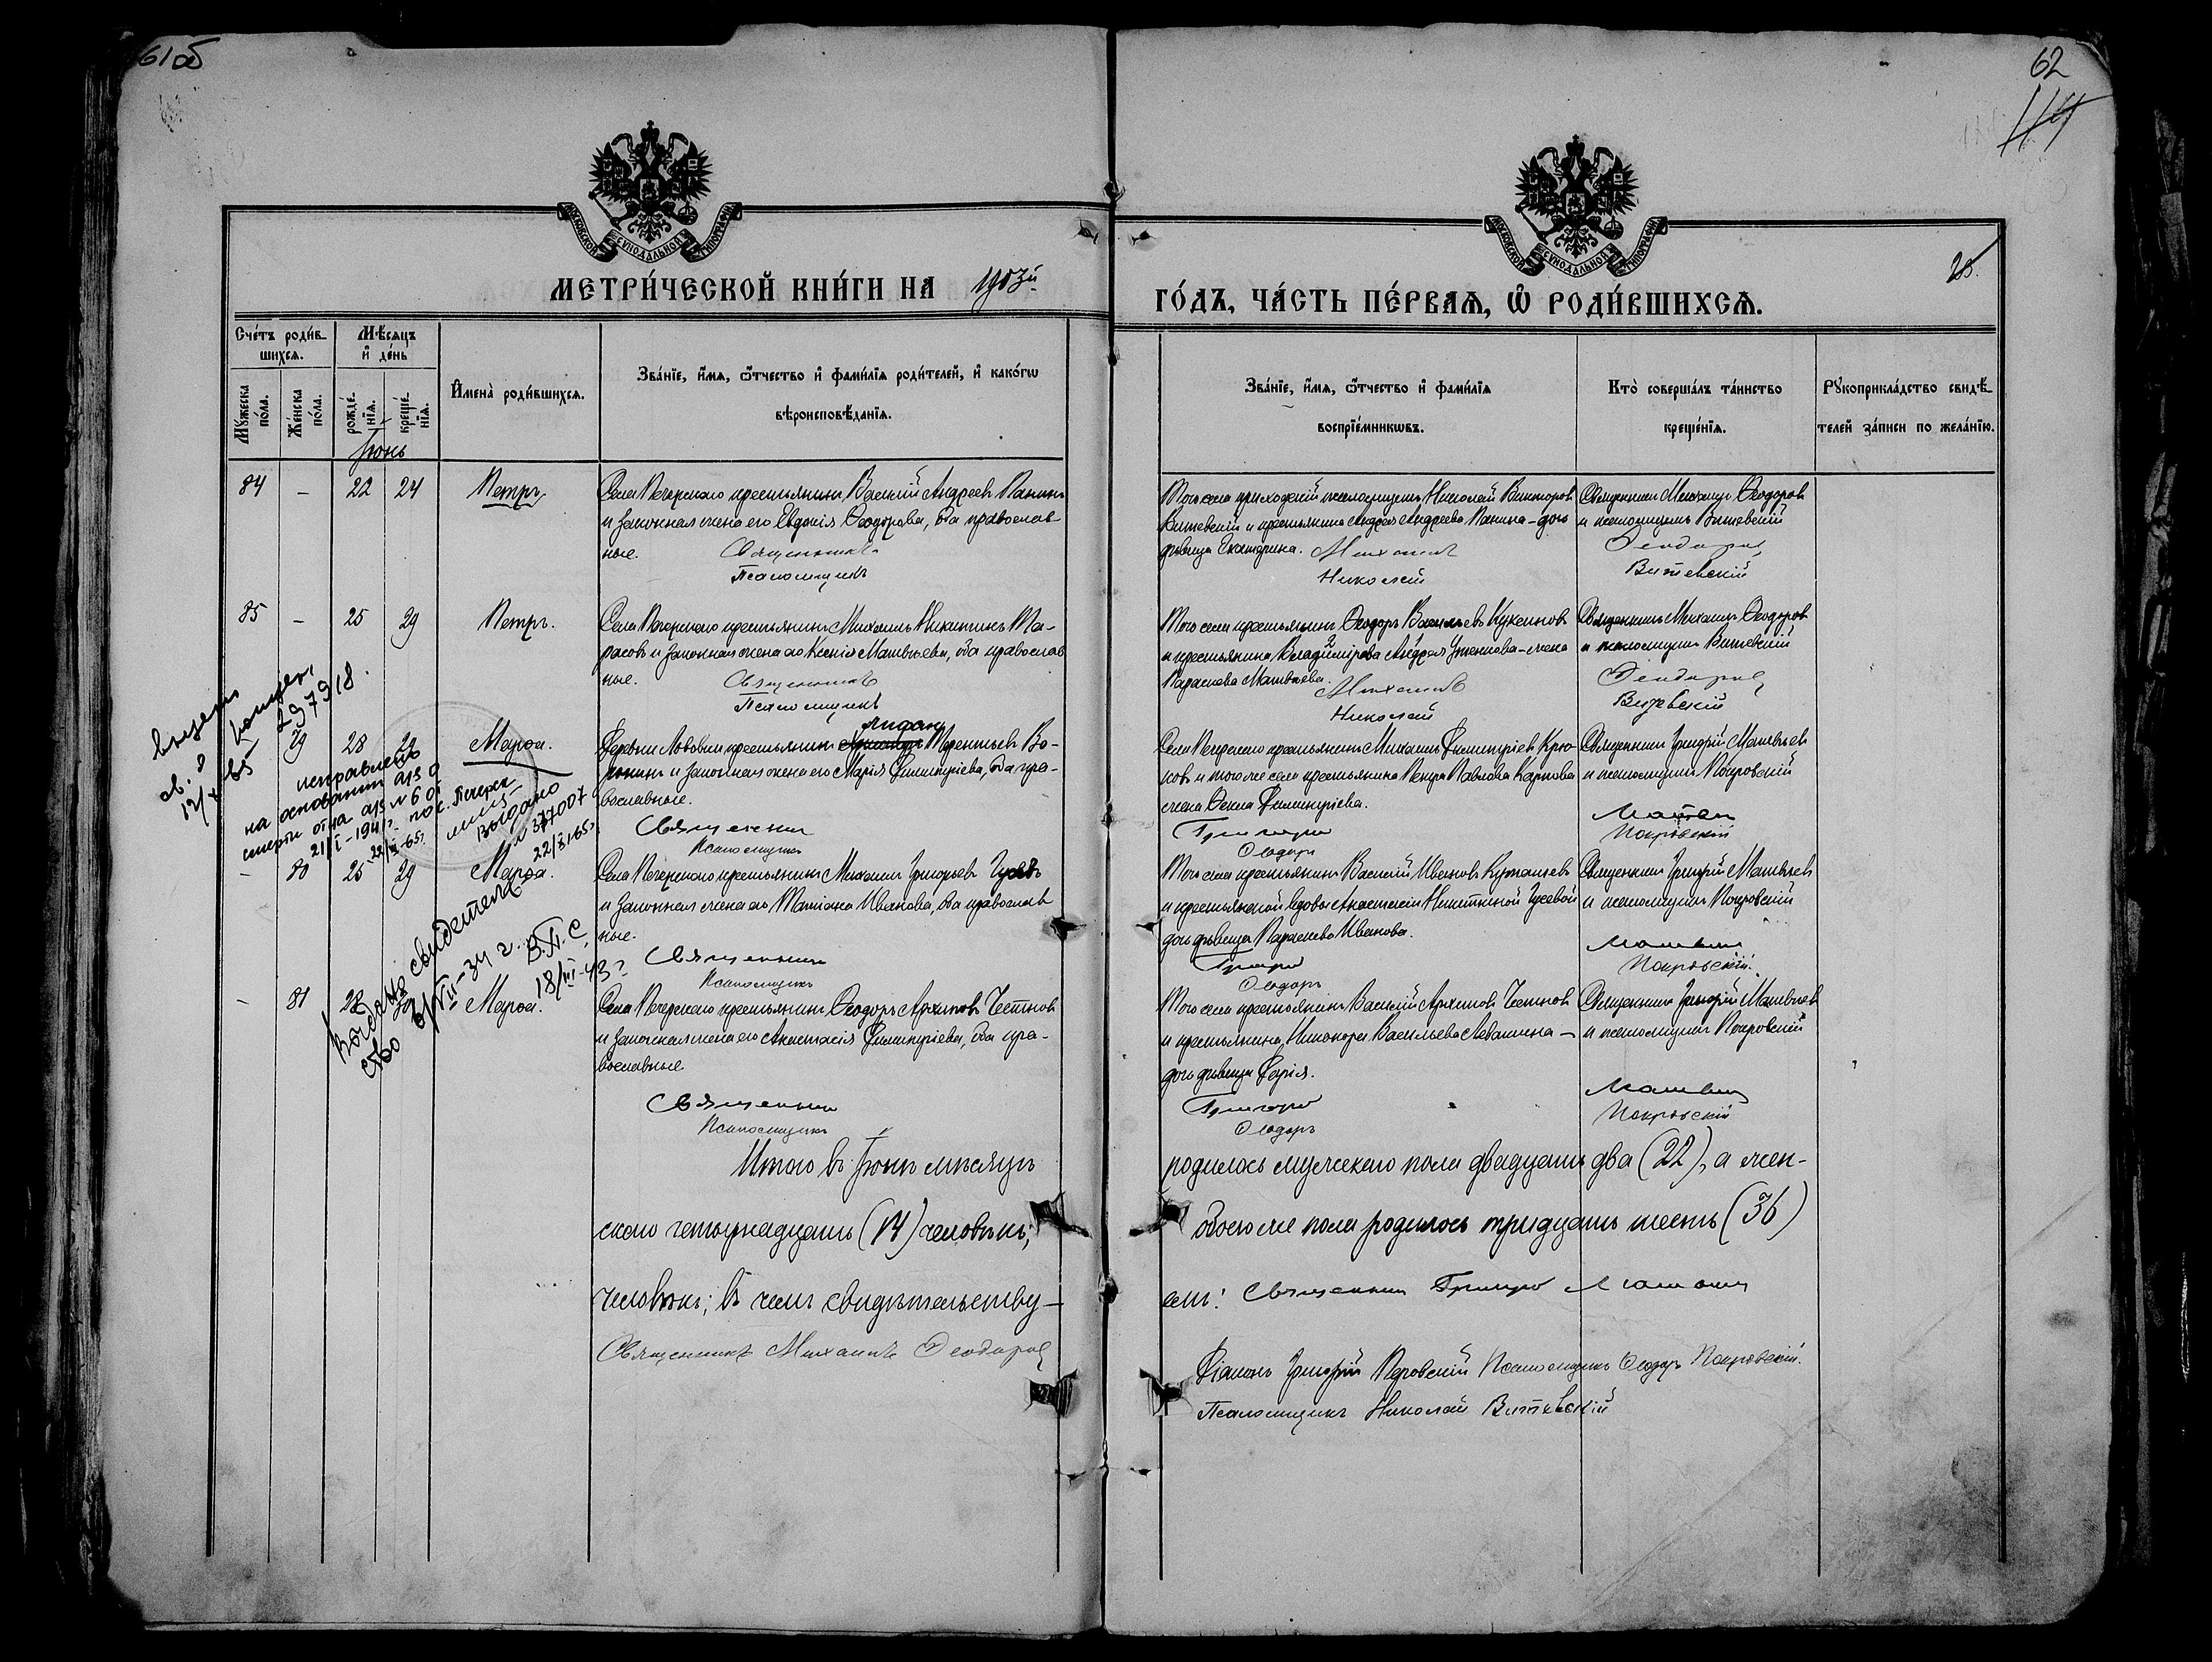 61об
62
114
25.
МОСКОВСКОЙ СѴНОДАЛЬНОЙ ТИПОГРАФІИ
МОСКОВСКОЙ СѴНОДАЛЬНОЙ ТИПОГРАФІИ
МЕТРИ́ЧЕСКОЙ КНИ́ГИ НА 1903й
ГО́ДЪ, ЧА́СТЬ ПЕ́РВАѦ, Ѡ҆ РОДИ́ВШИХСѦ.
Сче́тъ роди́в-
шихсѧ.
Мѣ́сѧцъ
и҆ де́нь
Мꙋжеска
по́ла.
Же́нска
по́ла.
рожде́-
нїѧ.
креще́-
нїѧ.
И҆мена̀ роди́вшихсѧ.
Зва́нїе, и҆́мѧ, ѻ҆́тчество и҆ фами́лїѧ роди́телей, и҆ како́гѡ
вѣроисповѣ́данїѧ.
Зва́нїе, и҆́мѧ, ѻ҆́тчество и҆ фами́лїѧ
воспрїе́мникѡвъ.
Кто̀ соверша́лъ та́инство
креще́нїѧ.
Рꙋкоприкла́дство свидѣ́-
телей за́писи по жела́нїю.
Іюнь
84 - 22 24 Петръ
Села Печерскаго крестьянинъ Василій Андреевъ Панинъ
и законная жена его Евдокія Ѳеодорова, оба православ-
ные. Священникъ
Псаломщикъ
Того села приходскій псаломщикъ Николай Викторовъ
Витевскій и крестьянина Андрея Андреева Панина - дочь
дѣвица Екатерина. Михаилъ
Николай
Священникъ Михаилъ Ѳеодоровъ
и псаломщикъ Витевскій
Ѳеодоровъ
Витевскій
85 - 25 29 Петръ.
Села Печерскаго крестьянинъ Михаилъ Никитинъ Та-
расовъ и законная жена его Ксенія Матвѣева, оба православ
ные. Священникъ
Псаломщикъ
Того села крестьянинъ Ѳеодоръ Васильевъ
и крестьянина Владимірова Андрея - жена
Параскева Матвѣева. Михаилъ
Николай
Священникъ Михаилъ Ѳеодоровъ
и псаломщикъ Витевскій
Ѳеодоровъ
Витевскій
29 28 29 Марѳа.
Деревни крестьянинъ Терентьевъ Во-
ронинъ и законная жена его Марія Димитріева, оба пра-
вославные.
Священникъ
Псаломщикъ
Села Печерскаго крестьянинъ Михаилъ Димитріевъ Крю-
ковъ и того же села крестьянина Петра Павлова Карпова
жена Ѳекла Димитріева.
Григорій
Ѳеодоръ
Священникъ Григорій Матвѣевъ
и псаломщикъ Покровскій
Матвѣевъ
Покровскій
- 80 25 29 Марѳа.
Села Печерскаго крестьянинъ Михаилъ Григорьевъ Гусевъ
и законная жена его Татіана Иванова, оба православ
ные.
Священникъ
Псаломщикъ
Того села крестьянинъ Василій Ивановъ
и крестьянской вдовы Анастасіи Никитиной Гусевой
дочь дѣвица Параскева Иванова.
Григорій
Ѳеодоръ
Священникъ Григорій Матвѣевъ
и псаломщикъ Покровскій
Матвѣевъ
Покровскій.
- 81 28 29 Марѳа.
Села Печерскаго крестьянинъ Ѳеодоръ Архиповъ Честновъ
и законная жена его Анастасія Димитріева, оба пра-
вославные.
Священникъ
Псаломщикъ
Того села крестьянинъ Василій Архиповъ Честновъ
и крестьянина Никанора Васильева Левашина -
дочь дѣвица Дарія.
Григорій
Ѳеодоръ
Священникъ Григорій Матвѣевъ
и псаломщикъ Покровскій
Матвѣевъ
Покровскій
св.
29 7918.
исправлено
на основании а/з о
смерти отца а/з № 6 от
21/I-1941г. пос.
Выдано
№ 377007
22/XI-65г.
Выдано свидетель-
ство 3/VII-34 г. В.П.С.
18/III-43г
Итого въ Іюнѣ мѣсяцѣ родилось мужескаго пола двадцать два (22), а жен-
скаго четырнадцать (14) человѣкъ; обоего же пола родилось тридцать шесть (36)
человѣкъ; въ чемъ свидѣтельству-емъ: Священникъ Григорій Матвѣевъ
Священникъ Михаилъ Ѳеодоровъ
Діаконъ Григорій Перовскій Псаломщикъ Ѳеодоръ Покровскій.
Псаломщикъ Николай Витевскій